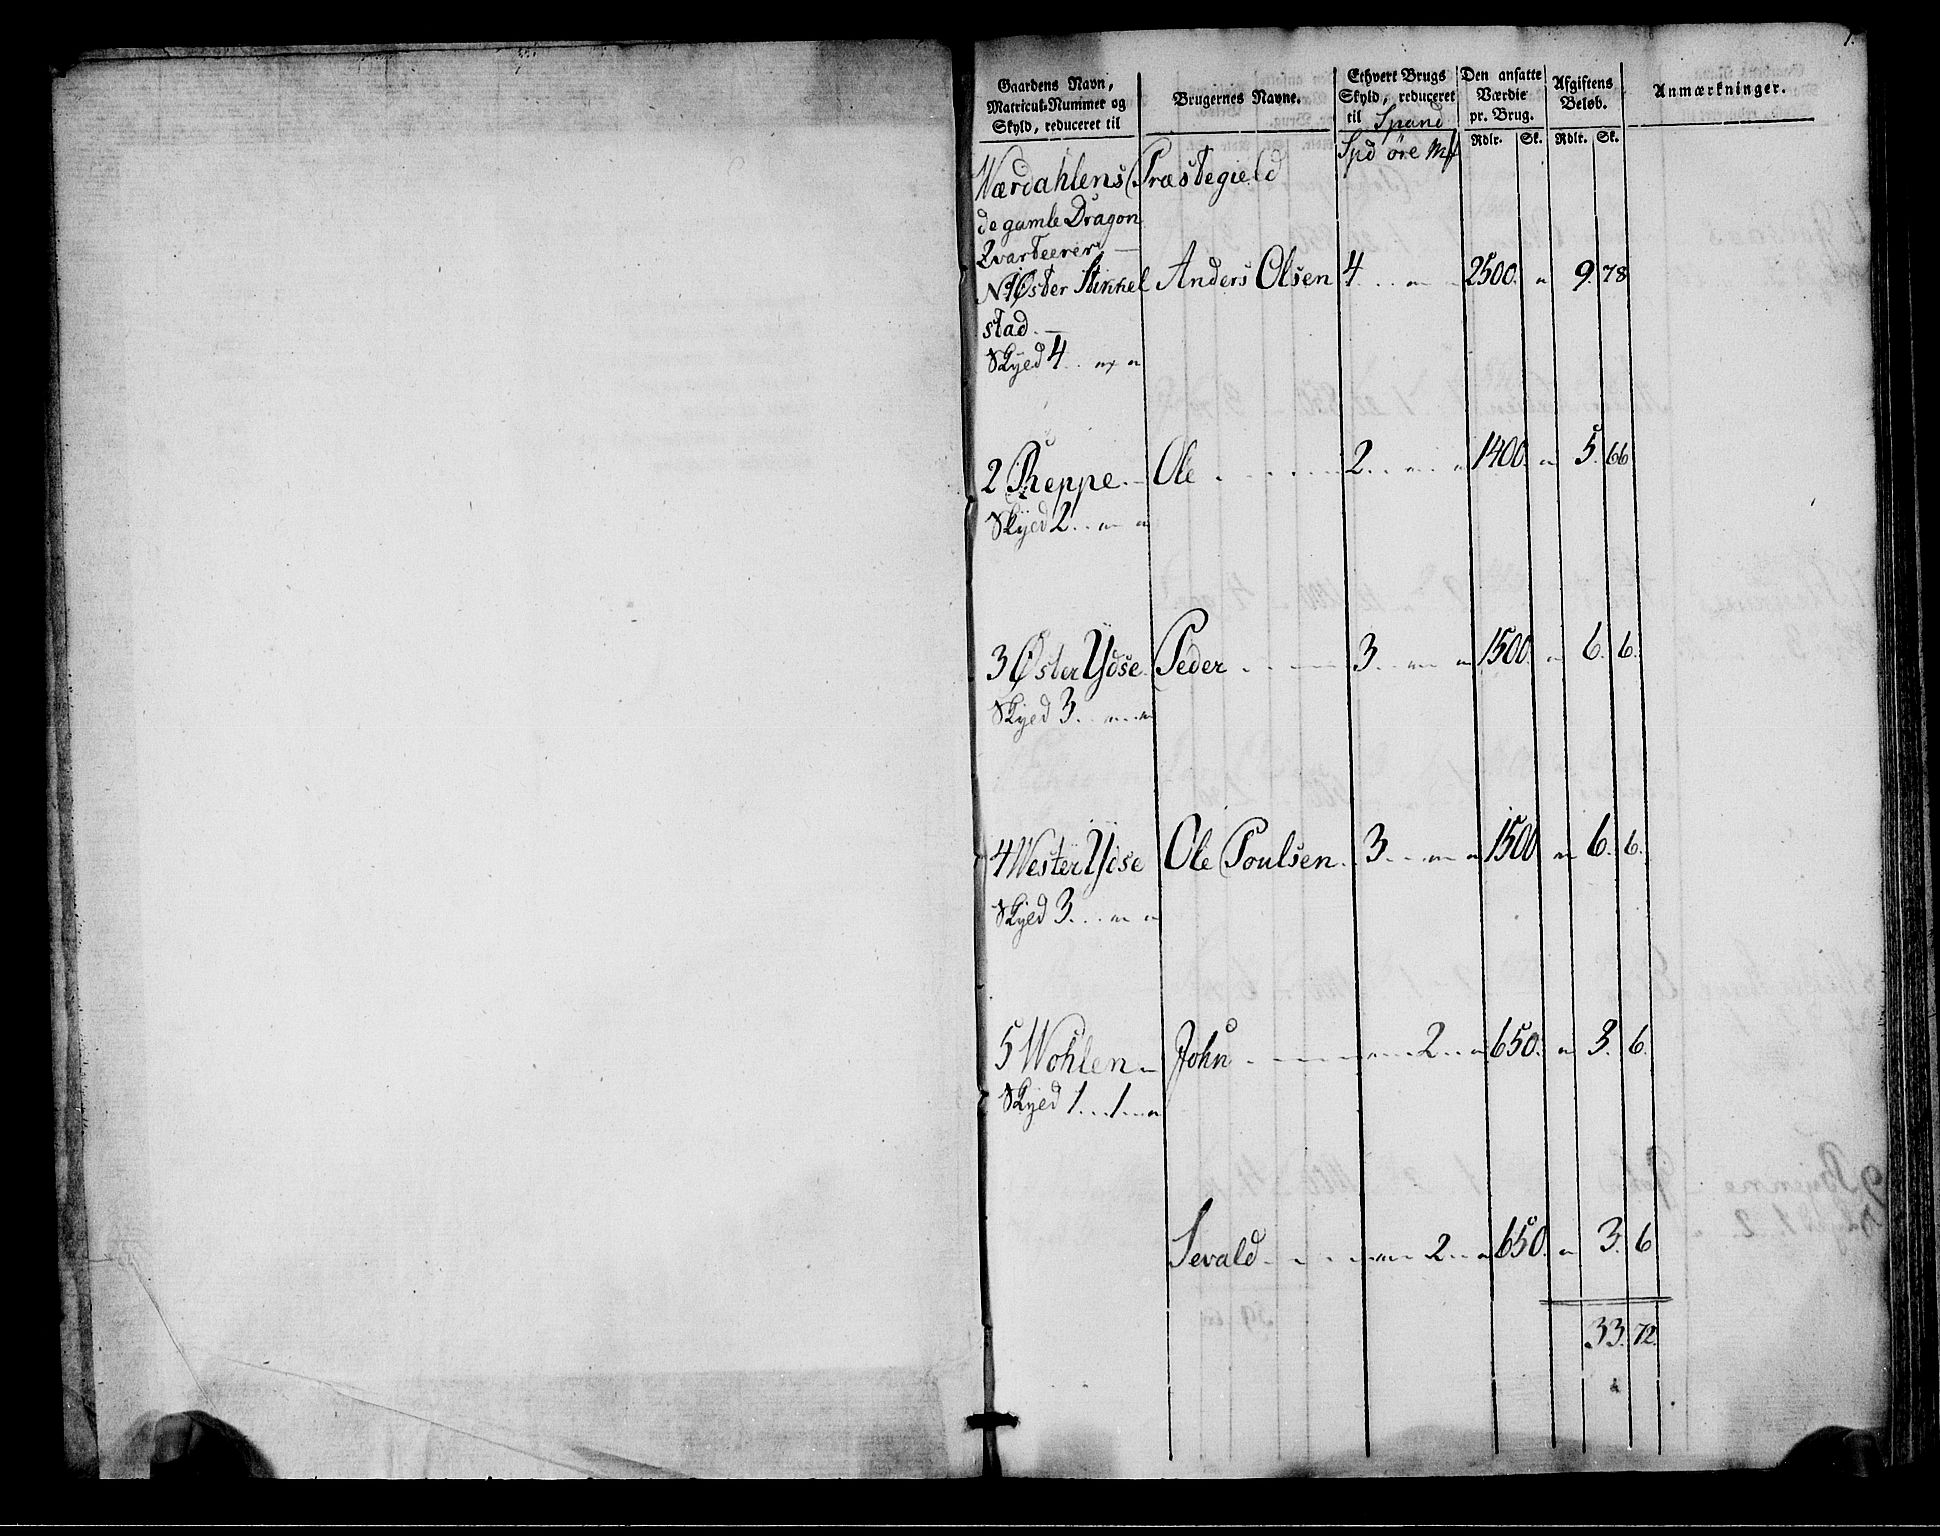 1.
Gaardens Navn, Matricul-Nummer og Skyld, reduceret til
Brugernes Navne.
Ethvert Brugs Skyld, reduceret til Spand
Den ansatte Værdie pr. Brug.
Afgiftens Beløb.
Anmærkninger.
Spd öre Mk
Rdlr. Sk. Rdlr. Sk.
Værdahlens Præstegield
de gamle Dragon
Qvarteerer —
No 1 Øster Stikkel Anders Olsen 4 . . . " " 2500. " 9. 78
stad. —
Skyed 4 . . " "
2 Reppe. — Ole . . . . . 2. . . " " 1400. " 5. 66
Skyed 2. . " "
3 Øster Ydse Peder . . . . 3. . . " " 1500. " 6. 6.
Skyed 3. . " . . "
4 Wester Ydse Ole Poulsen. . 3. . . " " 1500 " 6. 6.
Skyed 3. . . " "
5 Wohlen — John . . . . . " " 2. . " 650. " 3. 6.
Skyed 1. . . 1. . . "
Sevald . . . . . " " 2. . " 650. " 3. 6
33. 72.